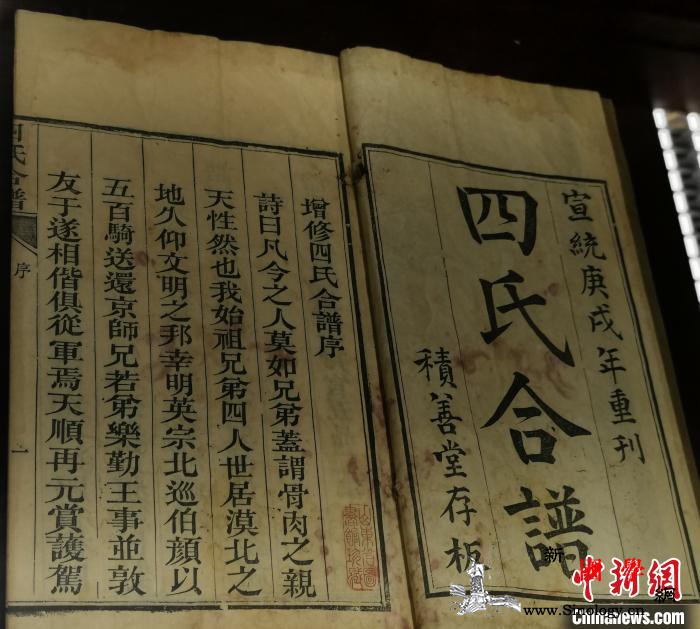 宣統庚戌年重刊
四氏合譜
積善堂存板
增修四氏合譜序
詩曰凡今之人莫如兄弟蓋謂骨肉之親
天性然也我始祖兄弟四人世居漠北之
地久仰文明之邦幸明英宗北巡伯顔以
五百騎送還京師兄若弟樂勤王事並敦
友于遂相偕俱從軍焉天順再元賞護駕
四氏合譜
序
一
中新網
www.Sinology.cn
Chinanews.com